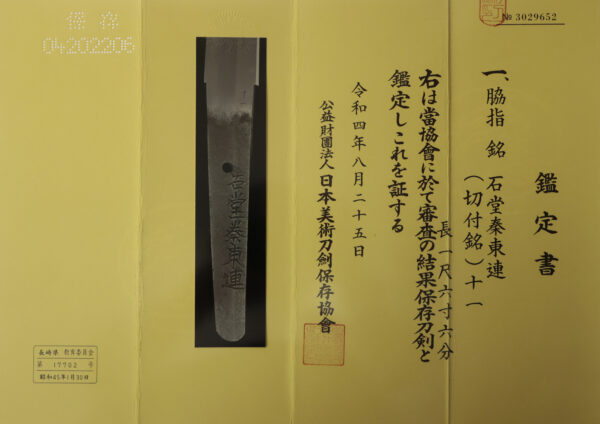 № 3029652
鑑定書
一、脇指 銘 石堂秦東連
(切付銘)十一
長一尺六寸六分
右は當協會に於て審査の結果保存刀剣と
鑑定しこれを証する
令和四年八月二十五日
公益財團法人日本美術刀劍保存協會
石堂秦東連
保存
04202206
長崎県 教育委員会
第 17702 号
昭和45年1月30日